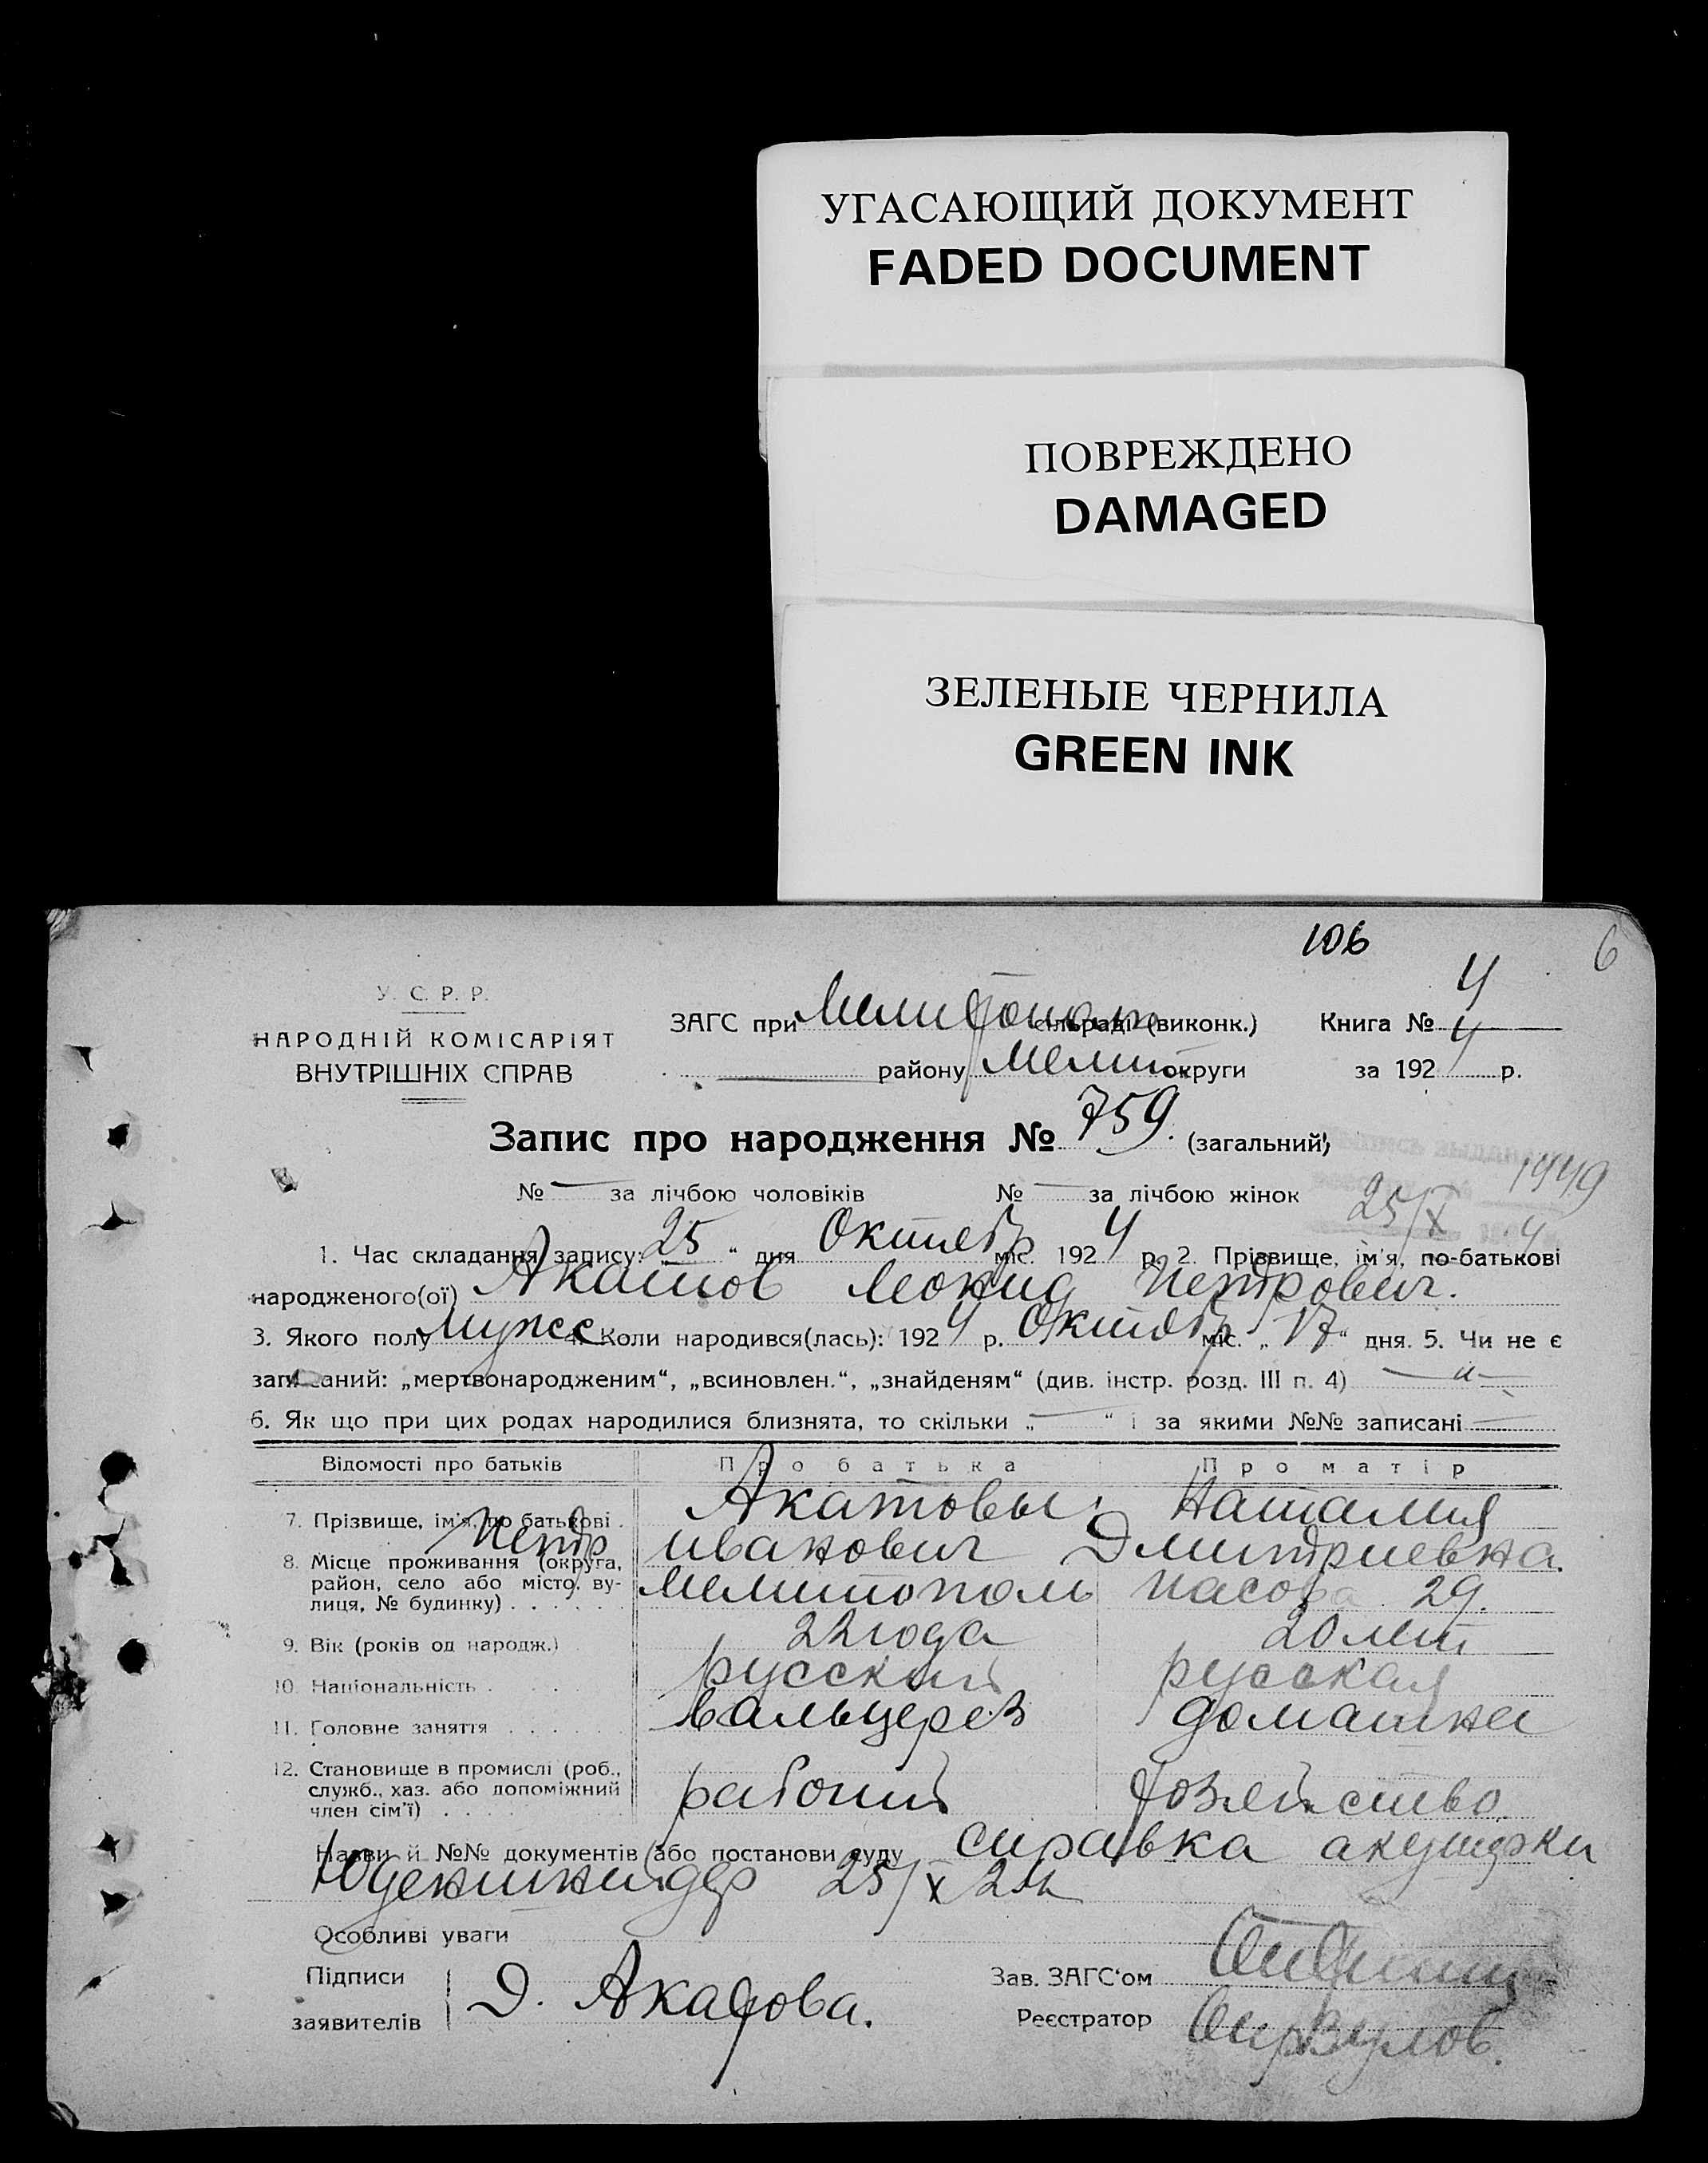 УГАСАЮЩИЙ ДОКУМЕНТ
FADED DOCUMENT
ПОВРЕЖДЕНО
DAMAGED
ЗЕЛЕНЫЕ ЧЕРНИЛА
GREEN INK
106
6
У. С. Р. Р.
НАРОДНІЙ КОМІСАРІЯТ
ВНУТРІШНІХ СПРАВ
ЗАГС при Мелитопол сільраді (виконк.) Книга № 4
району Мелит округи за 1924 р.
Запис про народження № 759. (загальний)
№ — за лічбою чоловіків № — за лічбою жінок
1449
25/X 4
1. Час складання запису: 25 " дня Октябр міс. 1924 р. 2. Прізвище, ім'я, по-батькові
народженого(ої) Акатов Леонид Петрович.
3. Якого полу мужс 4. Коли народився(лась): 1924 р. Октябр міс. „ 17 " дня. 5. Чи не є
записаний: „мертвонародженим“, „всиновлен.“, „знайденям“ (див. інстр. розд. III п. 4) — " —
6. Як що при цих родах народилися близнята, то скільки „ — “ і за якими №№ записані —
Відомості про батьків Про батька Про матір
7. Прізвище, ім'я, по батькові . Акатовы Наталия
Петр Иванович Дмитриевна.
8. Місце проживання (округа,
район, село або місто, ву-
лиця, № будинку) . . . . . . Мелитополь 29.
9. Вік (років од народж.) 22 года 20 лет
10. Національність . . . . русский русская
11. Головне заняття . . . . . . вальцерев домашнее
12. Становище в промислі (роб.,
служб., хаз. або допоміжний
член сім'ї) . . . . рабочий хозяйство
Назви й №№ документів (або постанови суду справка акушерки
25/X 24
Особливі уваги
Підписи
заявителів Д. Акатова.
Зав. ЗАГС‘ом
Реєстратор